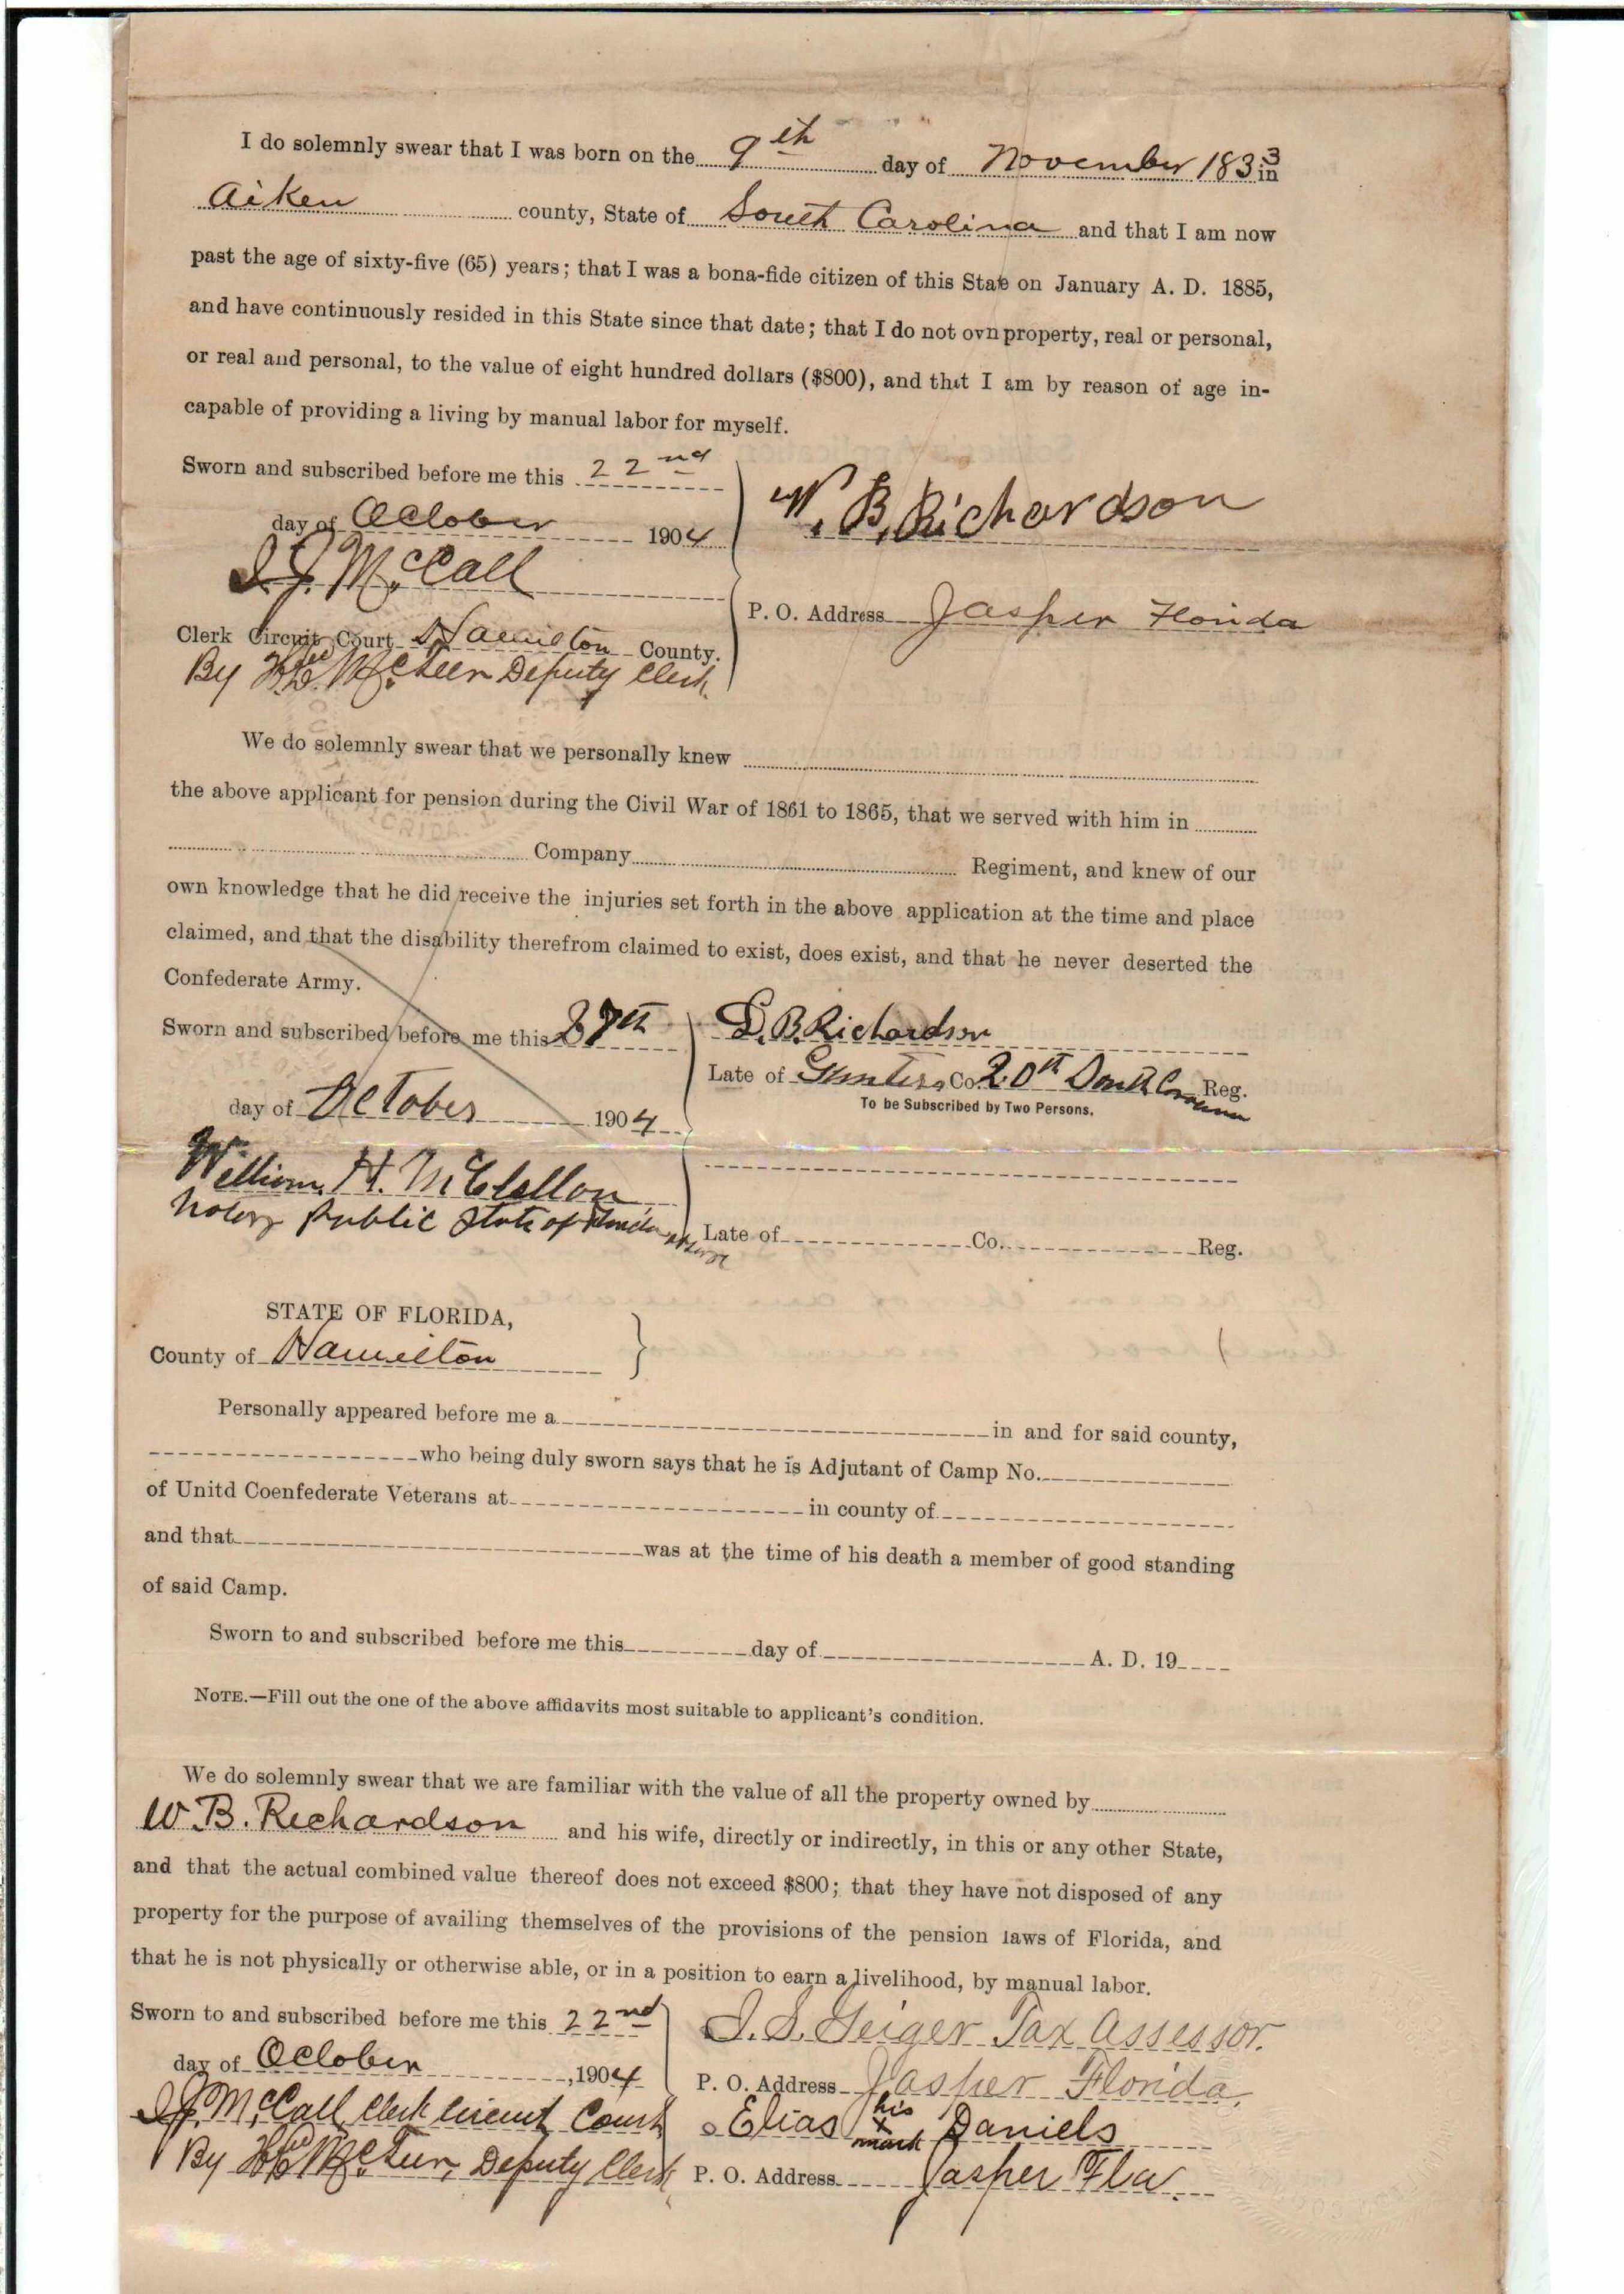 I do solemnly swear that I was born on the 9th day of November 1833 in
Aiken county, State of South Carolina and that I am now
past the age of sixty-five (65) years; that I was a bona-fide citizen of this State on January A. D. 1885,
and have continuously resided in this State since that date; that I do not ovn property, real or personal,
or real and personal, to the value of eight hundred dollars ($800), and that I am by reason of age in-
capable of providing a living by manual labor for myself.
Sworn and subscribed before me this 22nd
day of October 1904
W. B. Richardson
J. J. McCall
P. O. Address Jasper Florida
Clerk Circuit Court Hamilton County.
By Deputy Clerk
We do solemnly swear that we personally knew
the above applicant for pension during the Civil War of 1861 to 1865, that we served with him in
Company Regiment, and knew of our
own knowledge that he did receive the injuries set forth in the above application at the time and place
claimed, and that the disability therefrom claimed to exist, does exist, and that he never deserted the
Confederate Army.
Sworn and subscribed before me this 27th
D. B. Richardson
Late of Gunters Co. 20th South Carolina Reg.
To be Subscribed by Two Persons.
day of October 1904
William H. McClellan
Notary Public State of Florida at Large
Late of Co. Reg.
STATE OF FLORIDA,
County of Hamilton
Personally appeared before me a in and for said county,
who being duly sworn says that he is Adjutant of Camp No.
of Unitd Coenfederate Veterans at in county of
and that was at the time of his death a member of good standing
of said Camp.
Sworn to and subscribed before me this day of A. D. 19
NOTE.—Fill out the one of the above affidavits most suitable to applicant's condition.
We do solemnly swear that we are familiar with the value of all the property owned by
W. B. Richardson and his wife, directly or indirectly, in this or any other State,
and that the actual combined value thereof does not exceed $800; that they have not disposed of any
property for the purpose of availing themselves of the provisions of the pension laws of Florida, and
that he is not physically or otherwise able, or in a position to earn a livelihood, by manual labor.
Sworn to and subscribed before me this 22nd
day of October, 1904
J. S. Geiger Tax Assessor.
P. O. Address Jasper Florida,
J. J. McCall Clerk Circuit Court
Elias his x mark Daniels
By Deputy Clerk
P. O. Address Jasper Fla.